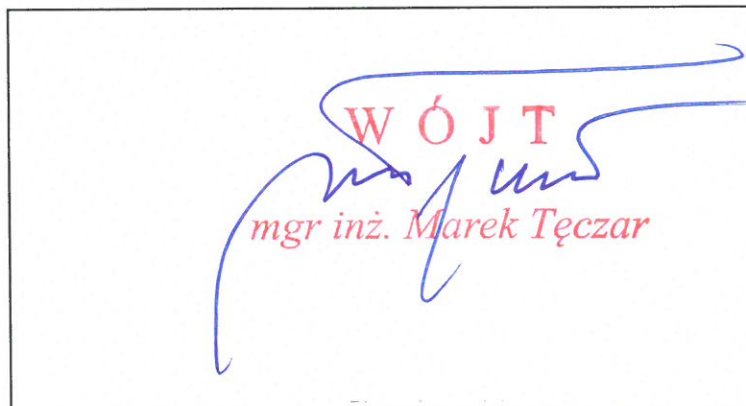 W Ó J T
mgr inż. Marek Tęczar